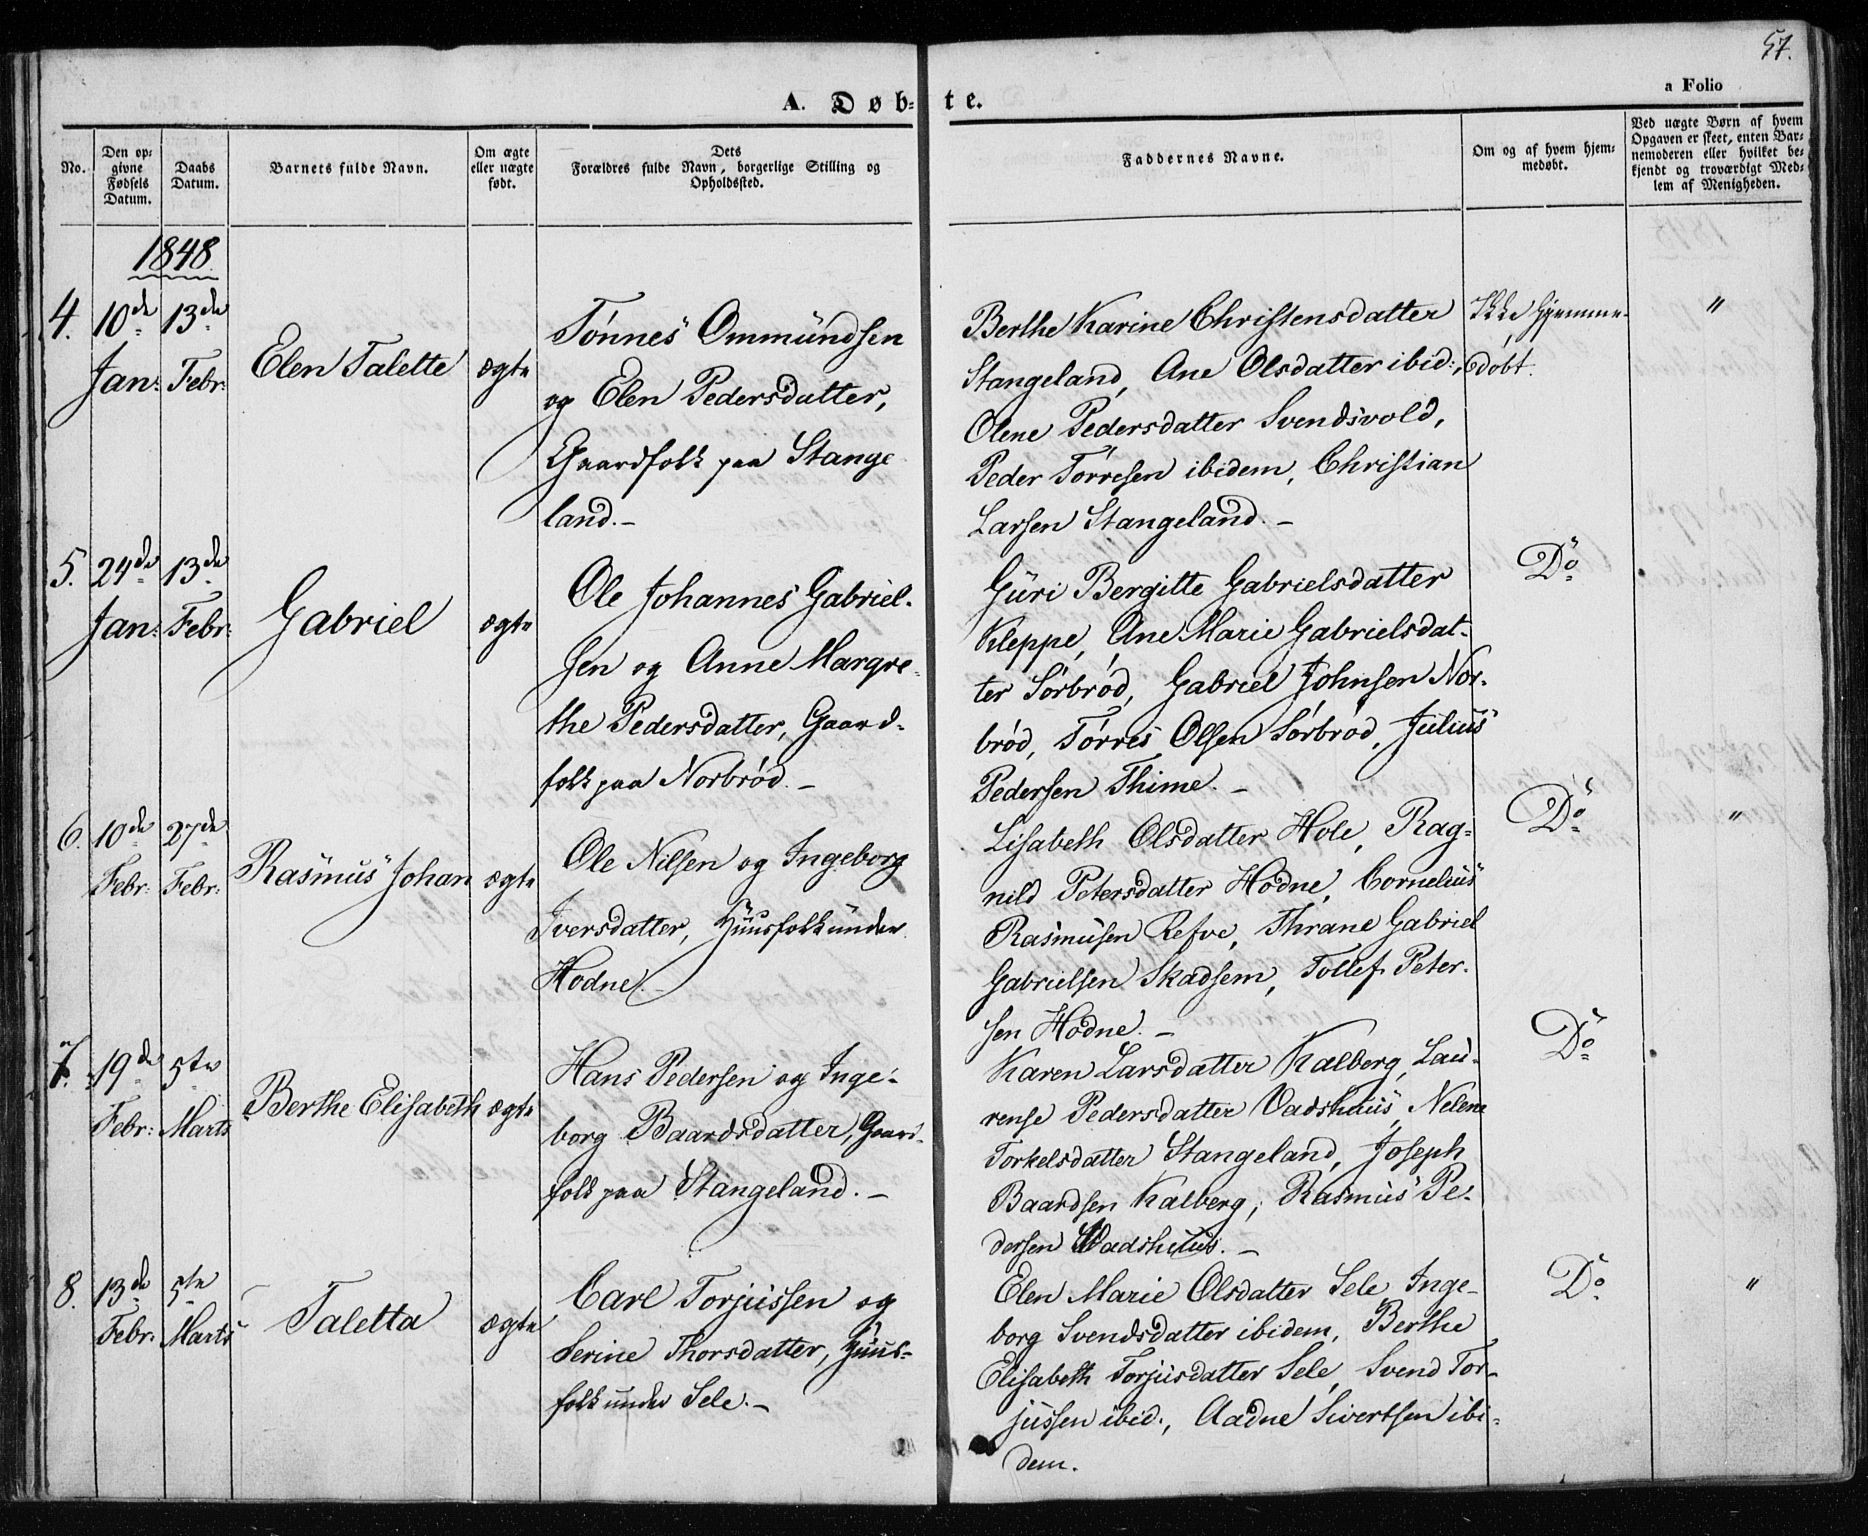 57.
a Folio
A. Døb-te.
No.
Den op-
givne
Fødsels
Datum.
Daabs
Datum.
Barnets fulde Navn.
Om ægte
eller uægte
født.
Dets
Forældres fulde Navn, borgerlige Stilling og
Opholdssted.
Faddernes Navne.
Om og af hvem hjem-
medøbt.
Ved uægte Børn af hvem
Opgaven er skeet, enten Bar-
nemoderen eller hvilket be-
kjendt og troværdigt Med-
lem af Menigheden.
1848
4.
10de
Jan:
13de
Febr:
Elen Talette
ægte
Tönnes Ommundsen
og Elen Pedersdatter,
Gaardfolk paa Stange
land.-
Berthe Karine Christensdatter
Stangeland, Ane Olsdatter ibid:,
Olene Pedersdatter Svendsvold,
Peder Törresen ibidem, Christian
Larsen Stangeland.-
Ikke Hjemme-
döbt.
"
5.
24de
Jan:
13de
Febr:
Gabriel
ægte
Ole Johannes Gabriel-
sen og Anne Margre-
the Pedersdatter, Gaard-
folk paa Norbröd.-
Guri Bergitte Gabrielsdatter
Kleppe, Ane Marie Gabrielsdat-
ter Sörbröd, Gabriel Johnsen Nor-
bröd, Törres Olsen Sörbröd, Julius
Pedersen Thime.-
Do
6.
10de
Febr:
27de
Febr:
Rasmus Johan
ægte
Ole Nilsen og Ingeborg
Iversdatter, Huusfolk under
Hodne.-
Lisabeth Olsdatter Hole, Rag-
nild Petersdatter Hodne, Cornelius
Rasmusen Refve, Thrane Gabriel
Gabrielsen Skadsem, Tollef Peter-
sen Hodne.-
Do
"
7.
19de
Febr:
5te
Marts
Berthe Elisabeth
ægte
Hans Pedersen og Inge-
borg Baardsdatter, Gaard-
folk paa Stangeland.-
Karen Larsdatter Kalberg, Lau-
rense Pedersdatter Vadshuus, Nelene
Torkelsdatter Stangeland, Joseph
Baardsen Kalberg, Rasmus Pe-
dersen Vadshuus.-
Do
8.
13de
Febr:
5te
Marts
Taletta
ægte
Carl Torjussen og
Serine Thorsdatter, Huus-
folk under Sele.-
Elen Marie Olsdatter Sele Inge-
borg Svendsdatter ibidem, Berthe
Elisabeth Torjusdatter Sele, Svend Tor-
jussen ibid., Aadne Sivertsen ibi-
dem.
Do
"